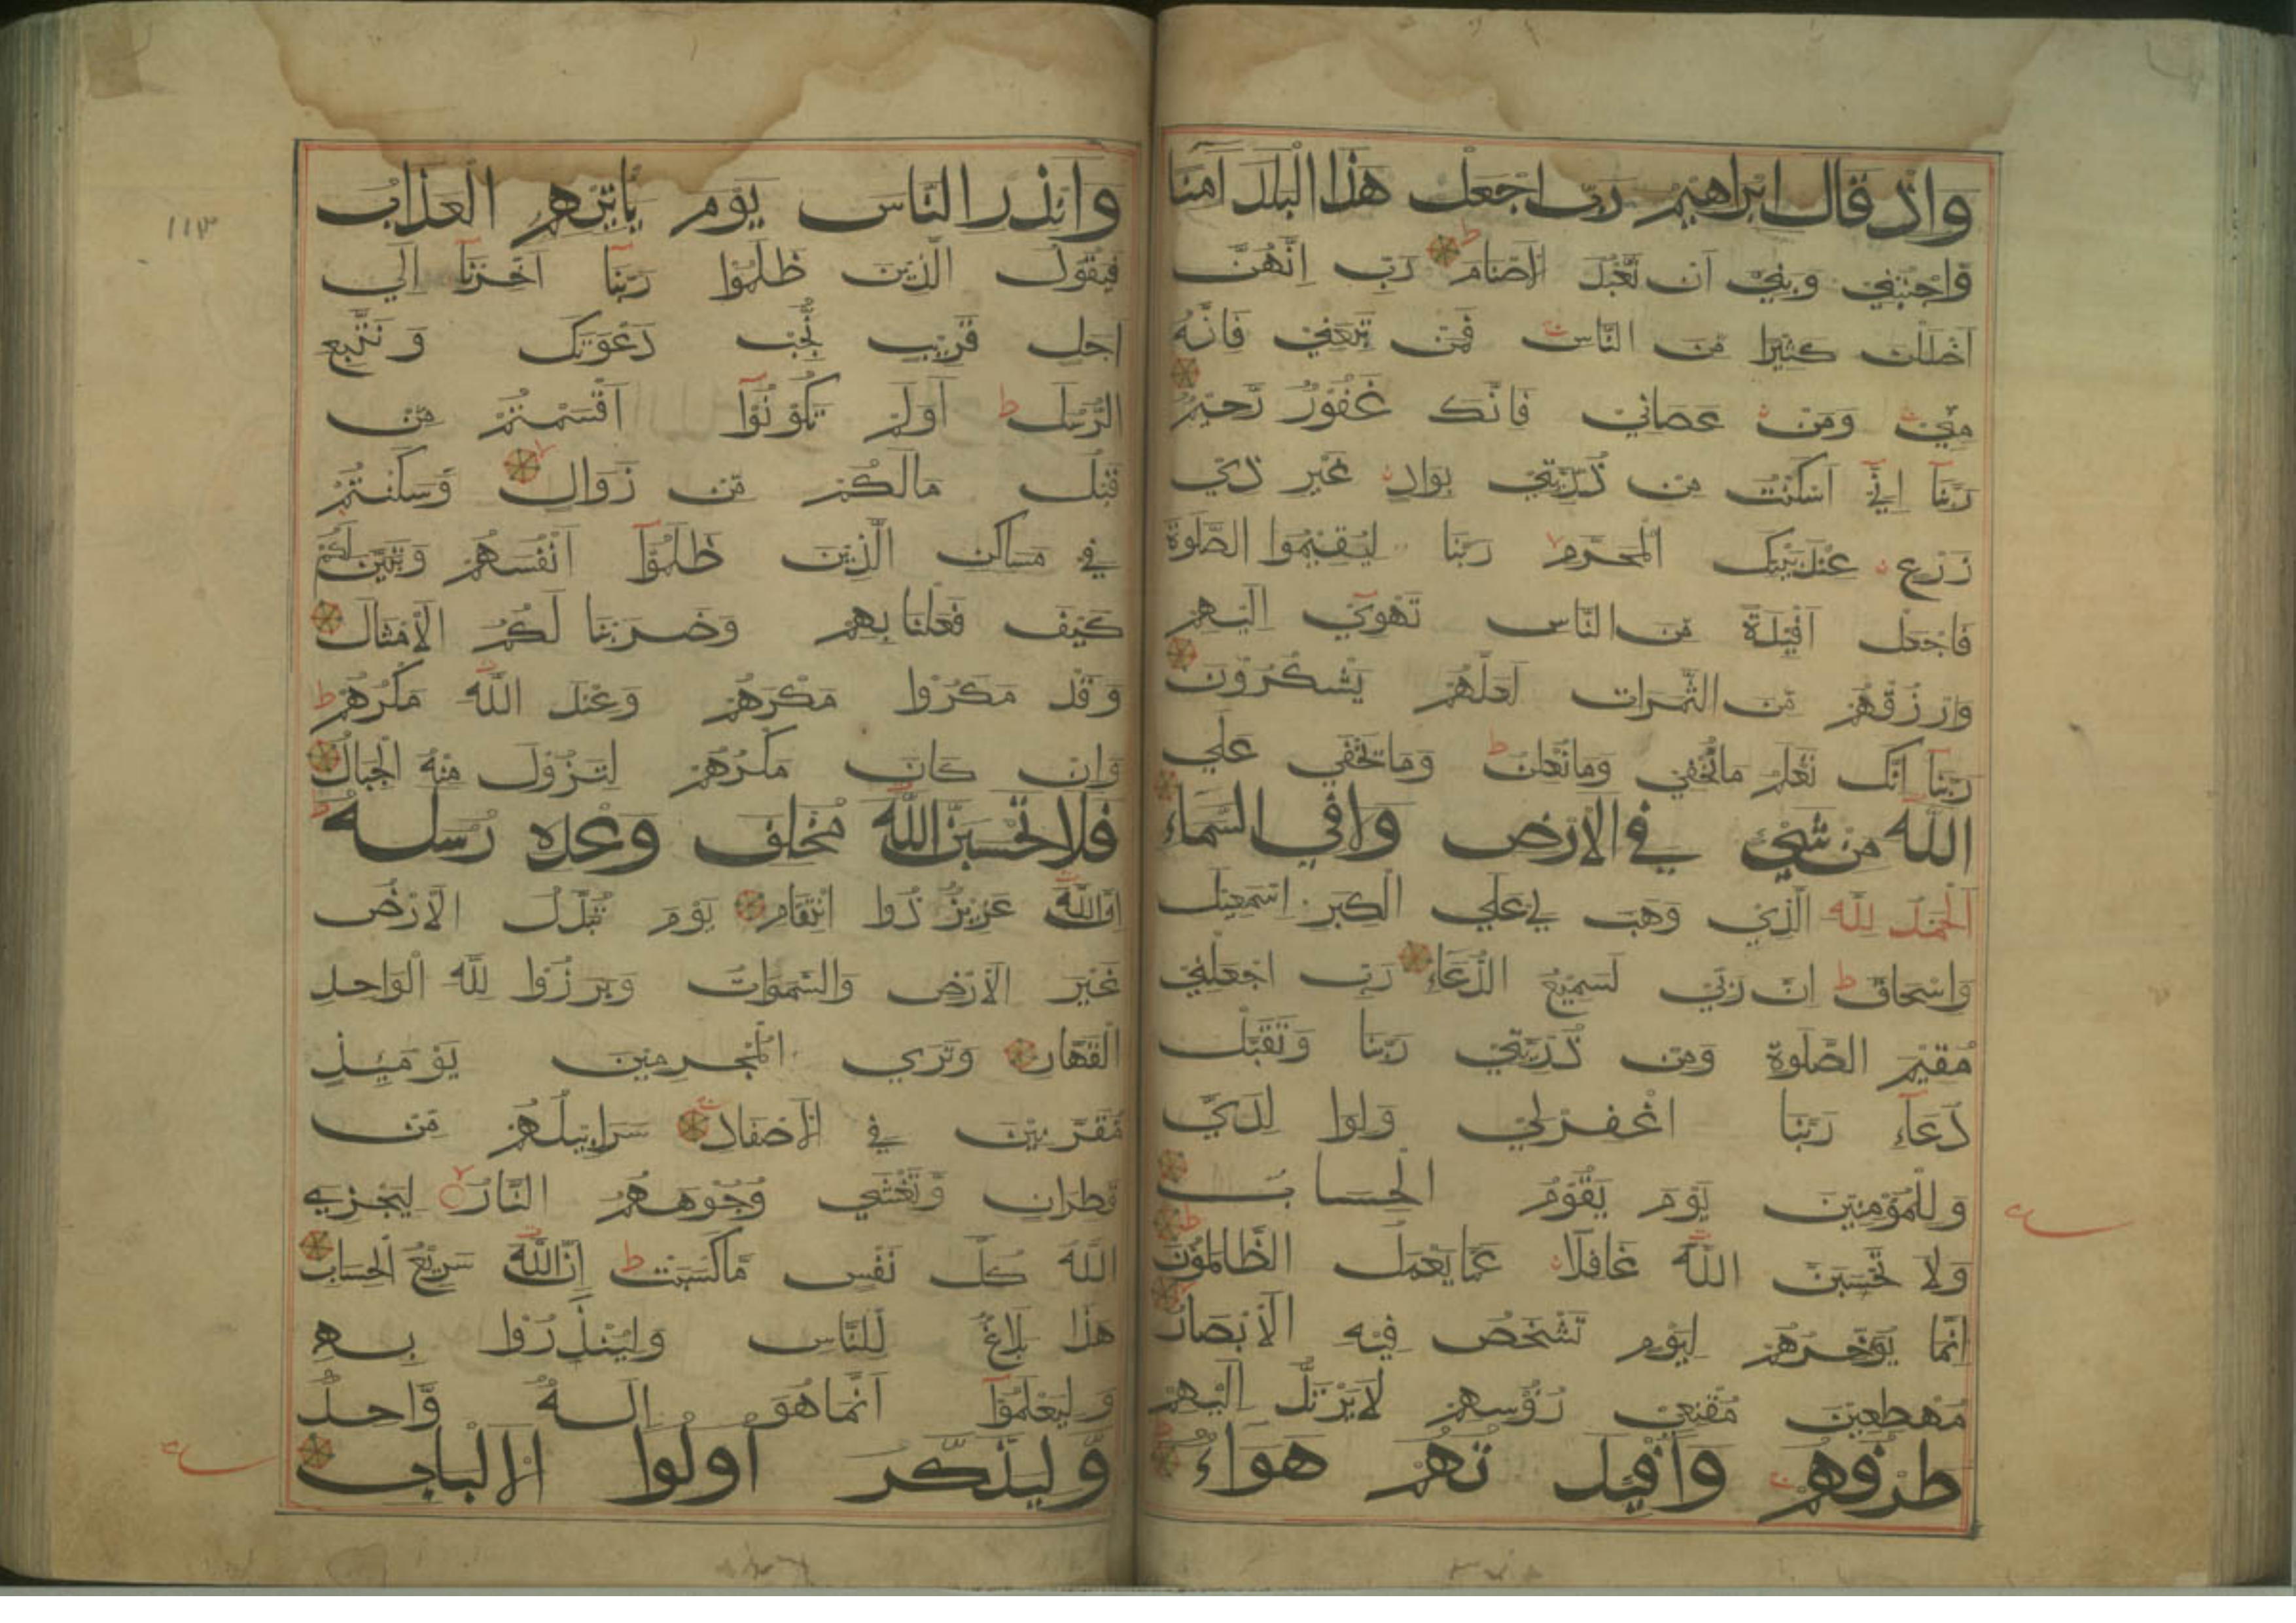 واذ قال ابراهيم رب اجعل هذا البلد آمنا
وَاجنبني وبني ان نعبد الاصنام ط رب انهن
اضللن كثيرا من الناس فمن تبعني فانه
مني ومن عصاني فانك غفور رحيم
ربنا اني اسكنت من ذريتي بواد غير ذي
زرع عند بيتك المحرم ربنا ليقيموا الصلوة
فاجعل افيدة من الناس تهوي اليهم
وارزقهم من الثمرات لعلهم يشكرون
ربنا انك تعلم ما نخفي وما نعلن ط وما يخفي علي
الله من شيء في الارض ولا في السماء
الحمد لله الذي وهب لي علي الكبر اسمعيل
واسحاق ط ان ربي لسميع الدعاء رب اجعلني
مقيم الصلوة ومن ذريتي ربنا وتقبل
دعآء ربنا اغفرلي ولوا لدي
وللمؤمنين يوم يقوم الحساب
ولا تحسبن الله غافلا عما يعمل الظالمون ط
انما يؤخرهم ليوم تشخص فيه الابصار
مهطعين مقنعي رؤسهم لا يرتد اليهم
طرفهم وافيد تهم هواء
وانذر الناس يوم ياتيهم العذاب
فيقول الذين ظلموا ربنا اخرنا الي
اجل قريب نجب دعوتك ونتبع
الرسل ط اولم تكونوا اقسمتم من
قبل مالكم من زوال وسكنتم
في مساكن الذين ظلموا انفسهم وتبين لكم
كيف فعلنا بهم وضربنا لكم الامثال
وقد مكروا مكرهم وعند الله مكرهم ط
وان كان مكرهم لتزول منه الجبال
فلا تحسبن الله مخلف وعده رسله ط
ان الله عزيز ذوا انتقام يوم تبدل الارض
غير الارض والسموات وبرزوا لله الواحد
القهار وتري المجرمين يومئذ
مقرنين في الاصفاد سرابيلهم من
قطران وتغشي وجوههم النار ليجزي
الله كل نفس ما كسبت ط ان الله سريع الحساب
هذا بلاغ للناس ولينذروا به
وليعلموا انما هو اله واحد
وليذكر اولوا الالباب
١١٣